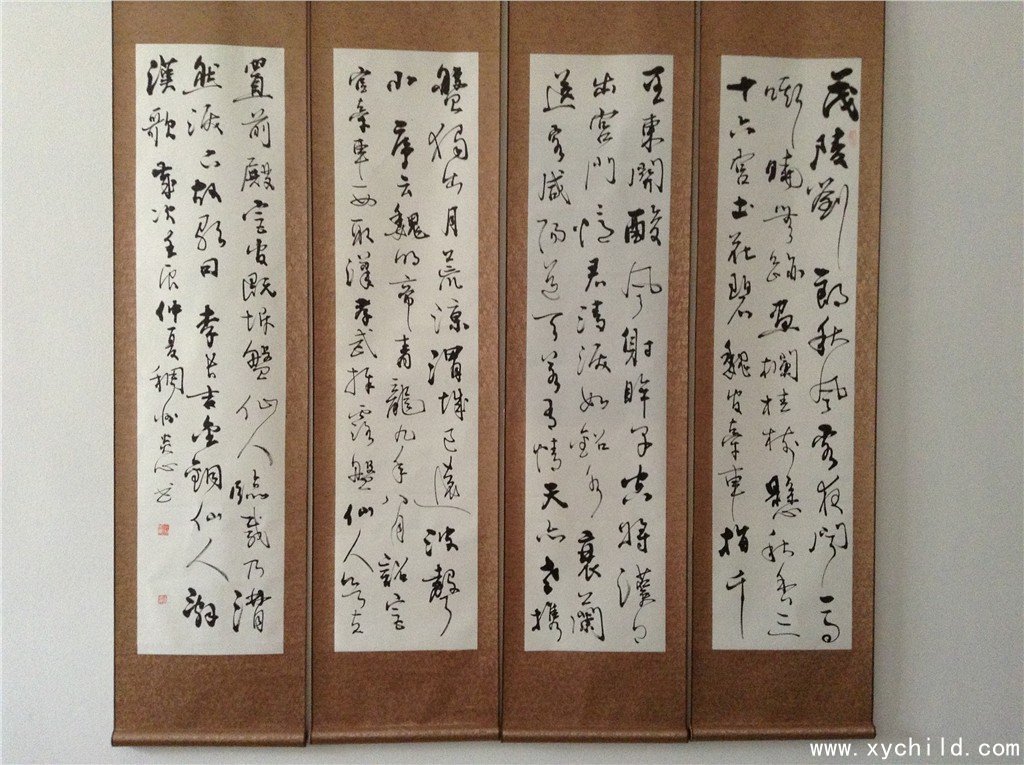 茂陵劉郎秋風客夜聞馬
嘶曉無跡畫欄桂樹懸秋香三
十六宮土花碧魏官牽車指千
里東關酸風射眸子空將漢月
出宮門憶君清淚如鉛水衰蘭
送客咸陽道天若有情天亦老携
盤獨出月荒涼渭城已遠波聲
小序云魏明帝青龍九年八月詔宮
官牽車西取漢孝武捧露盤仙人欲立
置前殿宮官既拆盤仙人臨載乃潸
然淚下故歌曰 李長吉金銅仙人辭
漢歌 歲次壬辰仲夏稠州 書
www.xychild.com